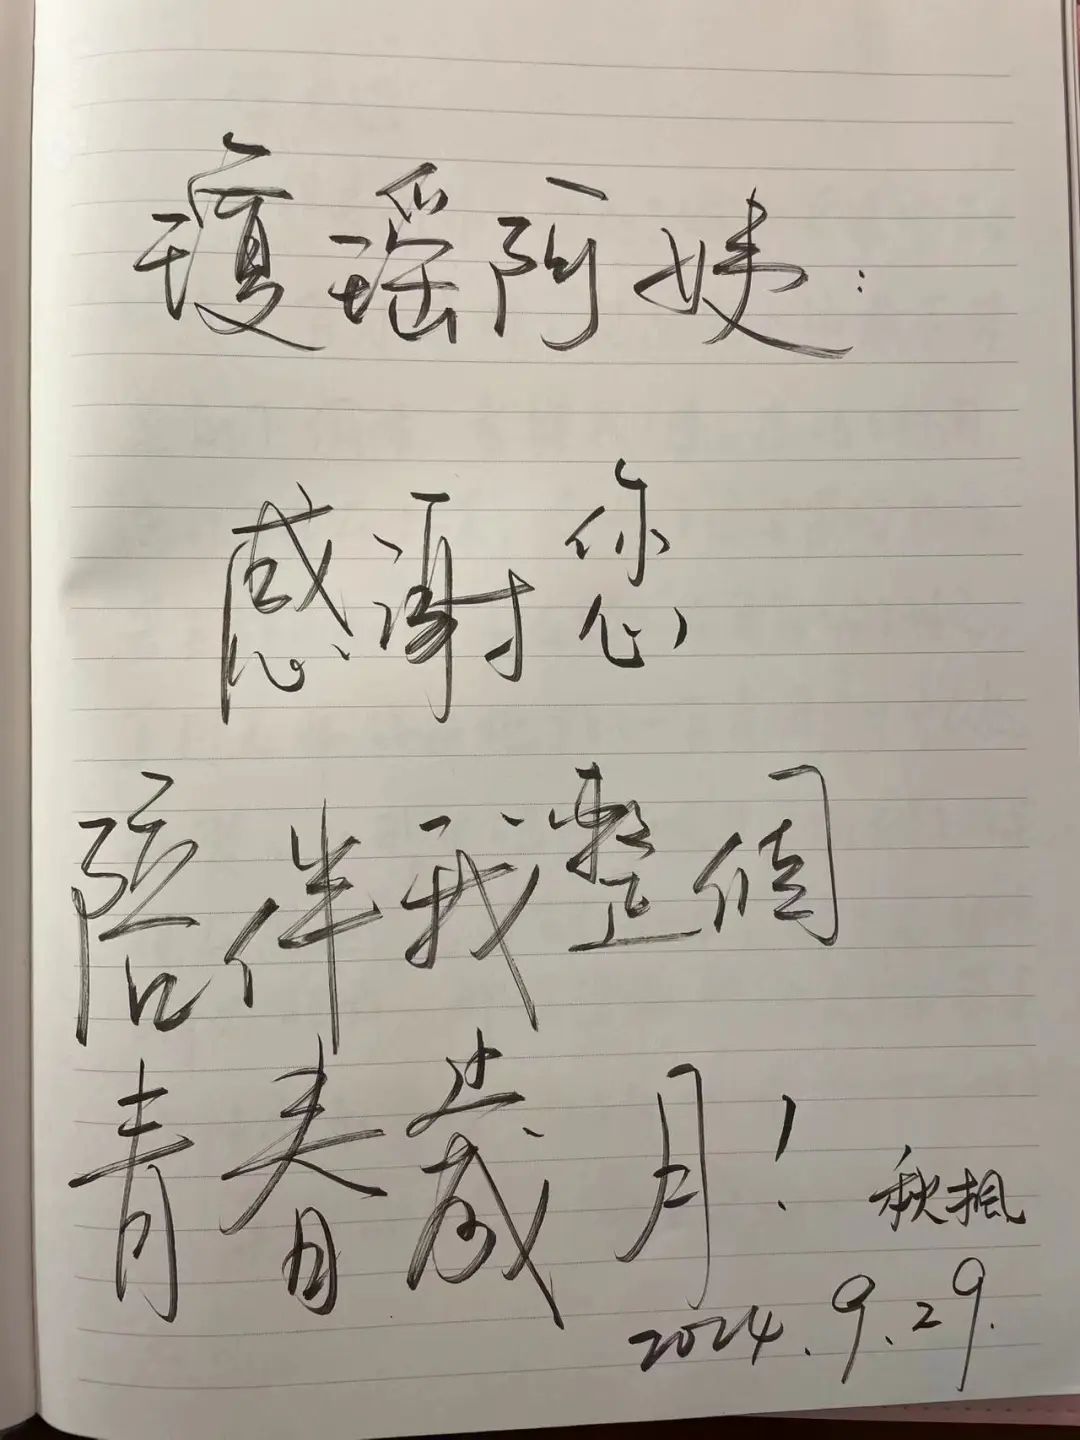 瓊瑤阿姨:
感謝您
陪伴我整個
青春歲月!
秋楓
2024.9.29.